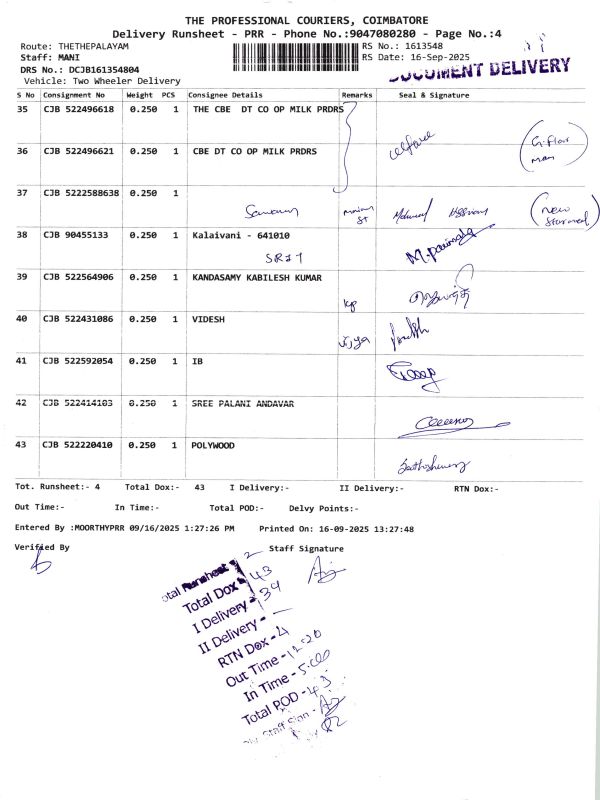 THE PROFESSIONAL COURIERS, COIMBATORE
Delivery Runsheet - PRR - Phone No.:9047080280 - Page No.:4
Route: THETHEPALAYAM RS No.: 1613548
Staff: MANI RS Date: 16-Sep-2025
DRS No.: DCJB161354804
Vehicle: Two Wheeler Delivery
DOCUMENT DELIVERY
S No Consignment No Weight PCS Consignee Details Remarks Seal & Signature
35 CJB 522496618 0.250 1 THE CBE DT CO OP MILK PRDRS
G. Floor
man
36 CJB 522496621 0.250 1 CBE DT CO OP MILK PRDRS
37 CJB 5222588638 0.250 1
new
38 CJB 90455133 0.250 1 Kalaivani - 641010
39 CJB 522564906 0.250 1 KANDASAMY KABILESH KUMAR
kp
40 CJB 522431086 0.250 1 VIDESH
Vijya
41 CJB 522592054 0.250 1 IB
42 CJB 522414103 0.250 1 SREE PALANI ANDAVAR
43 CJB 522220410 0.250 1 POLYWOOD
Tot. Runsheet:- 4 Total Dox:- 43 I Delivery:- II Delivery:- RTN Dox:-
Out Time:- In Time:- Total POD:- Delvy Points:-
Entered By :MOORTHYPRR 09/16/2025 1:27:26 PM Printed On: 16-09-2025 13:27:48
Verified By Staff Signature
Total Runsheet - 2
Total Dox - 43
I Delivery - 39
II Delivery - —
RTN Dox - 4
Out Time - 12.20
In Time - 5.00
Total POD - 43